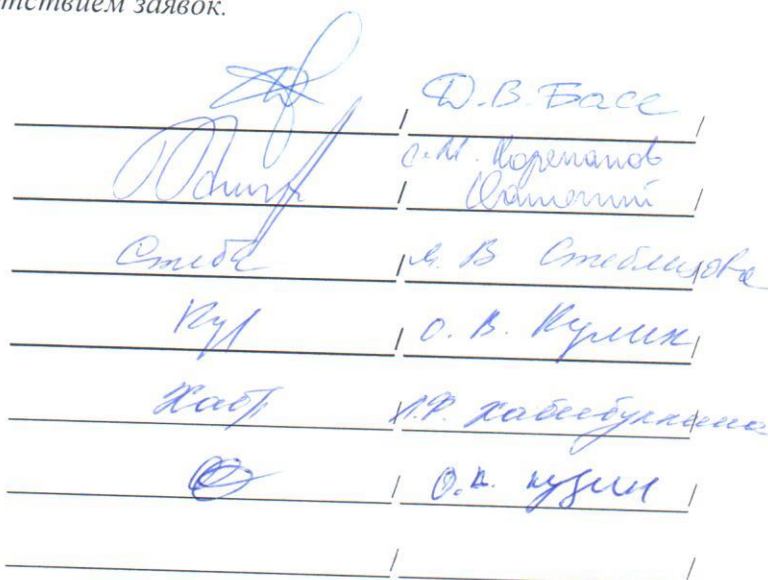 тствием заявок.
/ Д.В. Басс /
С.М. Корепанов
/ /
Стеб / М. В Стеблицова
Кул / О. В. Кулик /
Хаб / Л.Ф. Хабибуллина
/ О.В. Кузин /
/ /